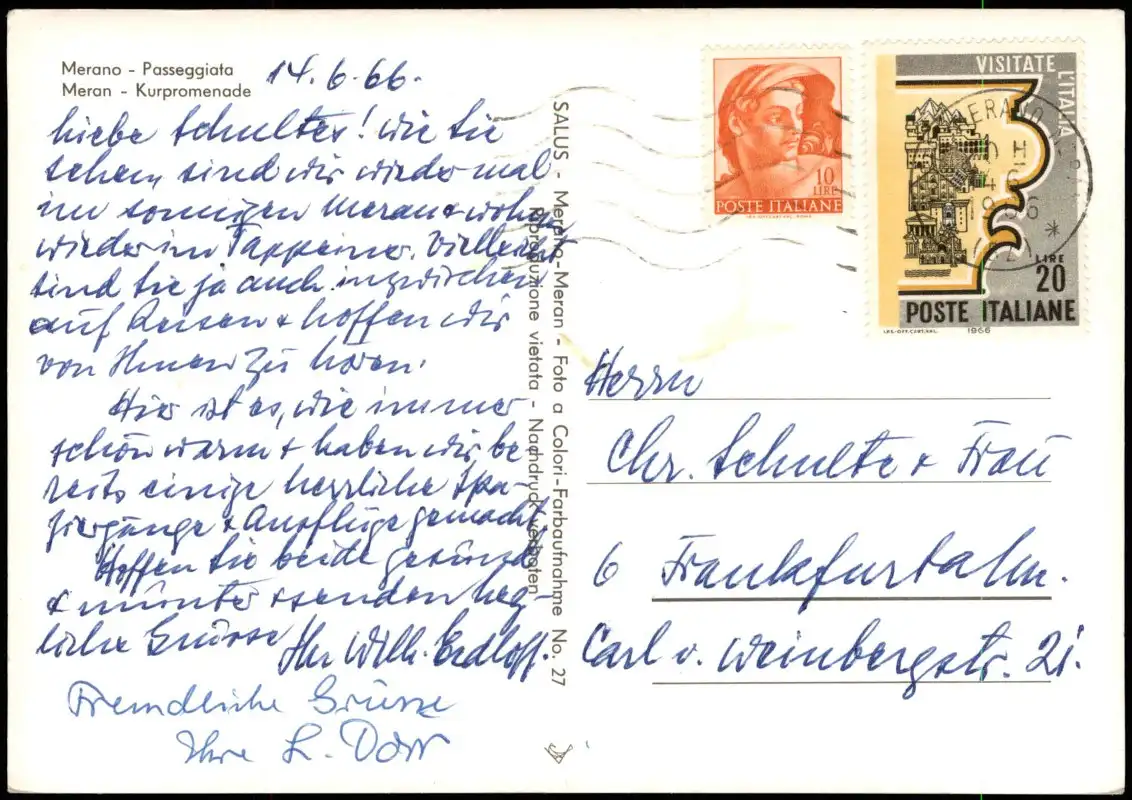 Merano - Passeggiata
Meran - Kurpromenade
14.6.66.
Liebe Schultes! Wie Sie
sehen, sind wir wieder mal
im sonnigen Meran + wohnen
wieder im Tappeiner. Vielleicht
sind Sie ja auch inzwischen
auf Reisen + hoffen wir
von Ihnen zu hören.
Hier ist es, wie immer
schön warm + haben wir be
reits einige herrliche Spa-
ziergänge + Ausflüge gemacht.
Hoffen Sie beide gesund
+ munter + senden herz-
liche Grüsse
Ihr Wilh.
Freundliche Grüsse
Ihre L. Dorr
SALUS - Merano-Meran - Foto a Colori-Farbaufnahme No. 27
Riproduzione vietata - Nachdruck verboten
10
LIRE
POSTE ITALIANE
VISITATE
L'ITALIA
LIRE
20
POSTE ITALIANE
1966
MERANO
1966
Herrn
Chr. Schulte + Frau
6 Frankfurt a/m.
Carl v. Weinbergstr. 21.